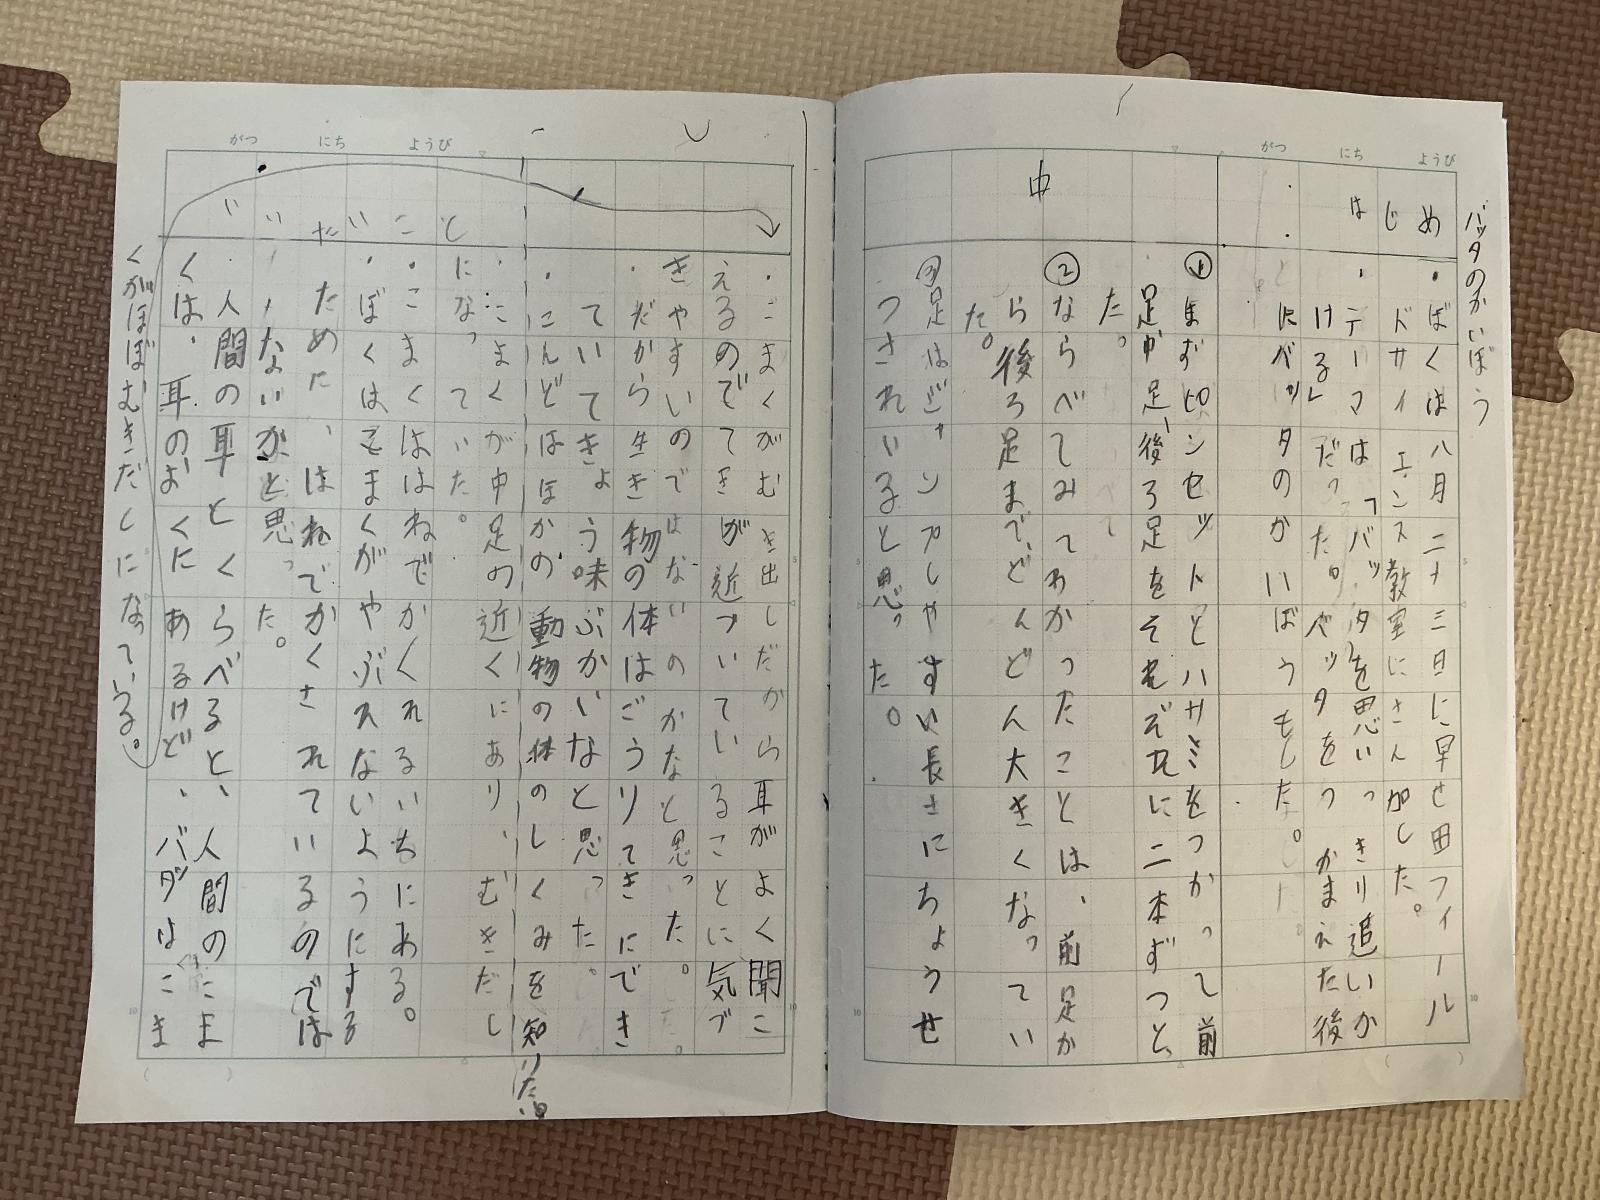 バッタのかいぼう
はじめ
・ぼくは八月二十三日に早せ田フィール
ドサイエンス教室にさん加した。
・テーマは「バッタを思いっきり追いか
ける」だった。バッタをつかまえた後
にバッタのかいぼうもした。
中
①まずピンセットとハサミをつかって前
足、中足、後ろ足をそれぞれに二本ずつと
た。
②ならべてみてわかったことは、前足か
ら後ろ足まで、どんどん大きくなってい
た。
③足はジャンプしやすい長さにちょうせ
つされいると思った。
・こまくがむき出しだから耳がよく聞こ
えるのでてきが近づいていることに気づ
きやすいのではないのかなと思った。
・だから生き物の体はごうりてきにでき
ていてきょう味ぶかいなと思った。
・こんどはほかの動物の体のしくみを知りたい
・こまくが中足の近くにあり、むきだし
になっていた。
いいたいこと
・こまくははねでかくれるいちにある。
・ぼくはこまくがやぶれないようにする
ために、はねでかくされているのでは
ないかと思った。
・人間の耳とくらべると、人間のこま
くは、耳のおくにあるけど、バッタはこま
くがほぼむきだしになっている。
がつ にち ようび
がつ にち ようび